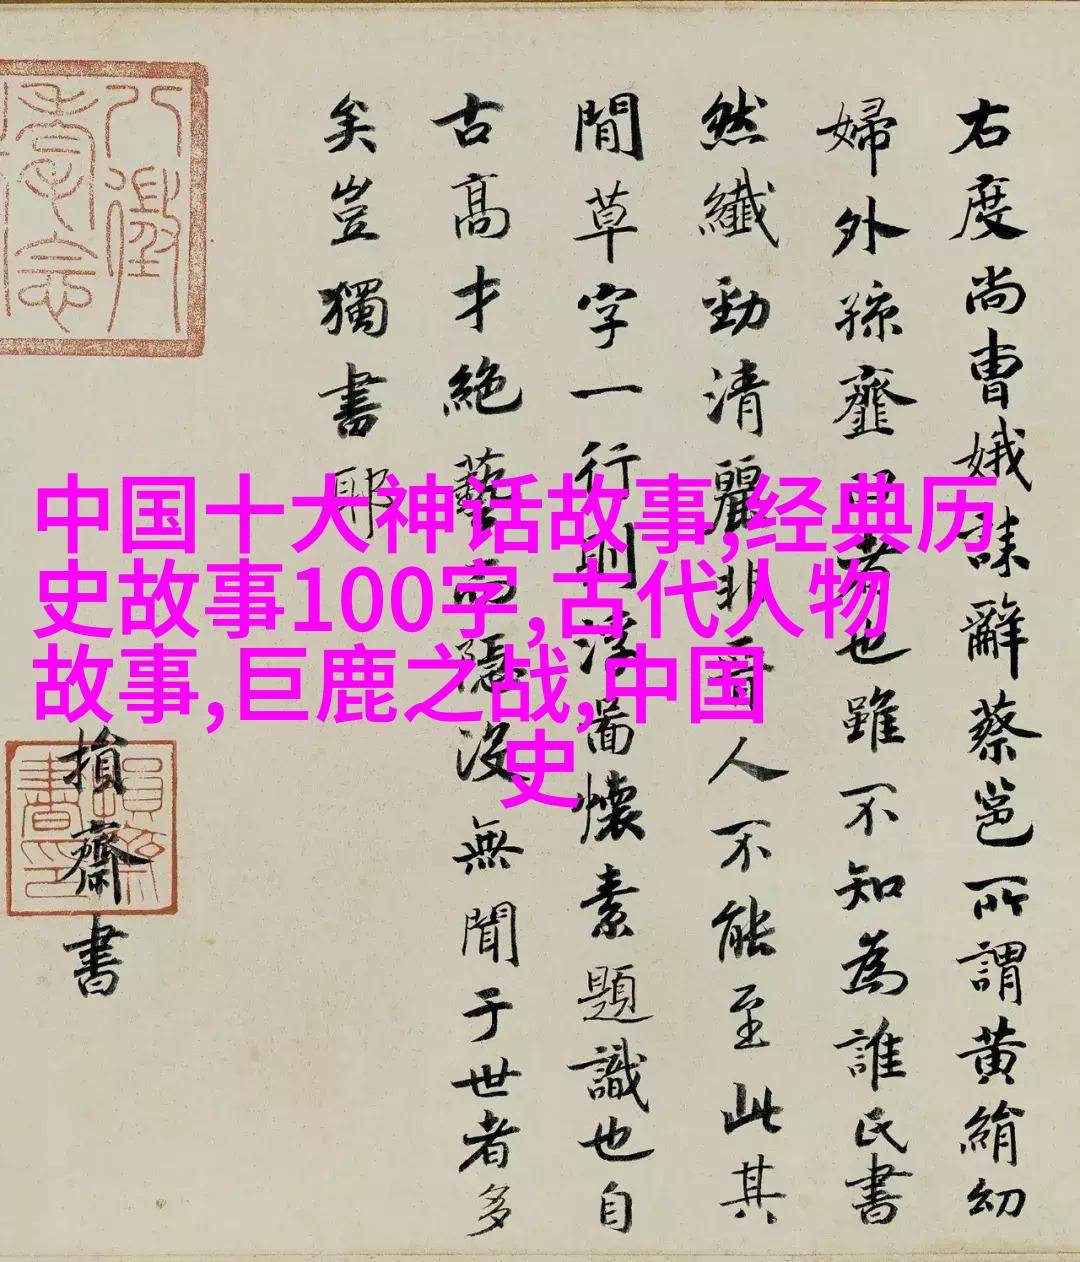 右度尚曹娥誄辭蔡邕所謂黃絹幼
婦外孫虀臼者也雖不知為誰氏書
然纖勁清麗非晉人不能至此其
閒草字一行則浮啚懷素題識也自
古高才絕藝而隱沒無聞于世者多
矣豈獨書耶
損齋書
中国十大神话故事,经典历
史故事100字,古代人物
故事,巨鹿之战,中国
史